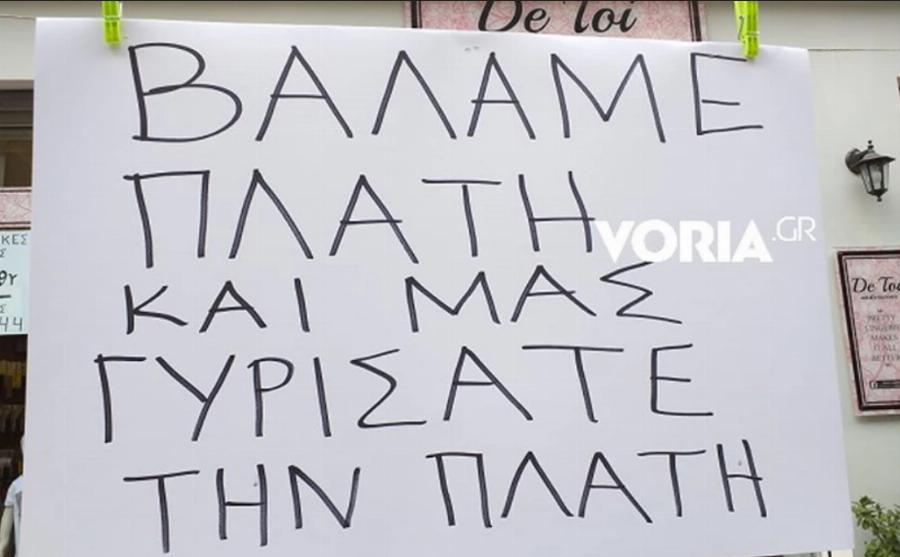 De Toi
ΒΑΛΑΜΕ
ΠΛΑΤΗ
VORIA.GR
ΚΑΙ ΜΑΣ
ΓΥΡΙΣΑΤΕ
ΤΗΝ ΠΛΑΤΗ
ΚΕΣ
44
De Toi
PRETTY
LINGERIE
MAKES
IT ALL
BETTER